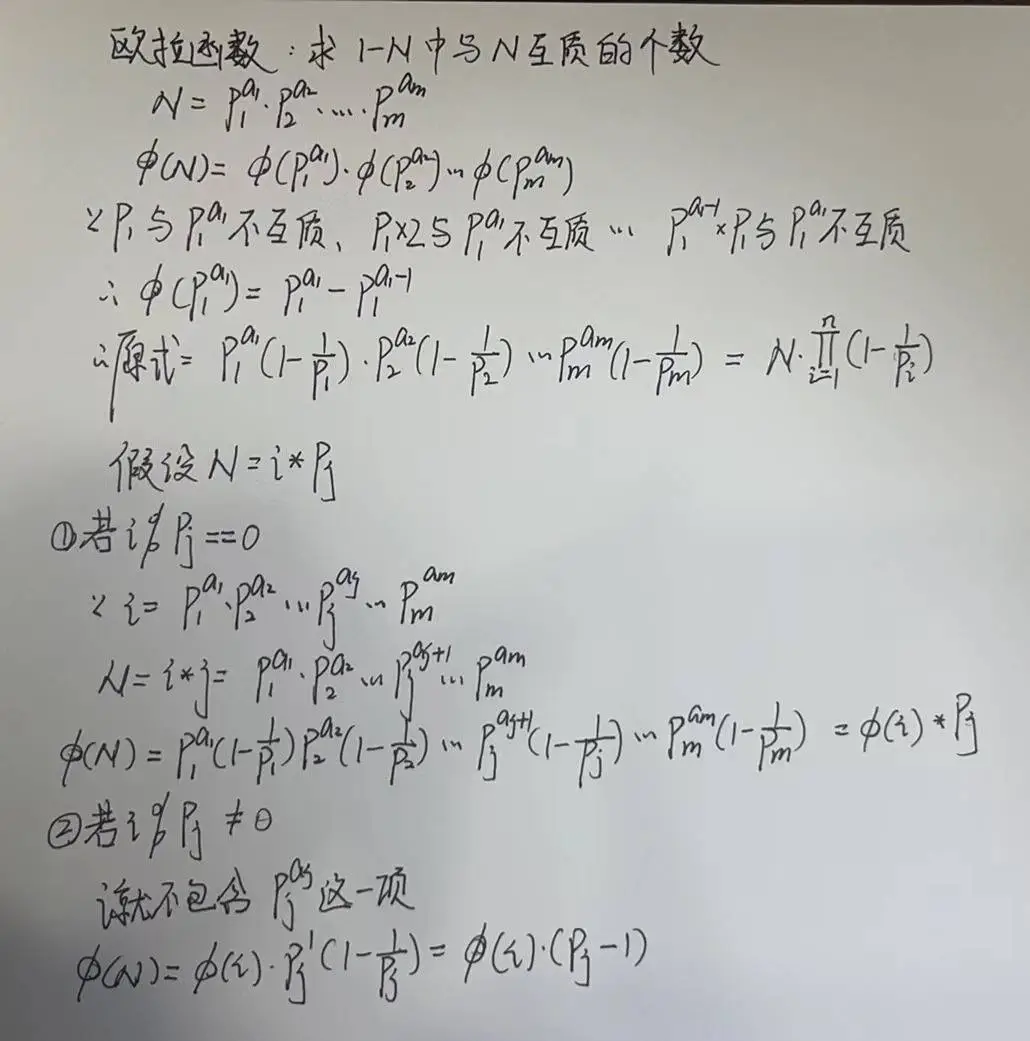 欧拉函数：求 1-N 中与 N 互质的个数
N = P₁^a₁·P₂^a₂·....·Pₘ^aₘ
φ(N) = φ(P₁^a₁)·φ(P₂^a₂)…φ(Pₘ^aₘ)
∵ P₁ 与 P₁^a₁ 不互质、P₁×2 与 P₁^a₁ 不互质 … P₁^(a₁-1)×P₁ 与 P₁^a₁ 不互质
∴ φ(P₁^a₁) = P₁^a₁ - P₁^(a₁-1)
∴ 原式 = P₁^a₁(1-1/P₁)·P₂^a₂(1-1/P₂)…Pₘ^aₘ(1-1/Pₘ) = N·∏_{i=1}^{n}(1-1/Pᵢ)
假设 N = i * Pⱼ
①若 i % Pⱼ == 0
∵ i = P₁^a₁·P₂^a₂…Pⱼ^aⱼ…Pₘ^aₘ
N = i * j = P₁^a₁·P₂^a₂…Pⱼ^(aⱼ+1)…Pₘ^aₘ
φ(N) = P₁^a₁(1-1/P₁)P₂^a₂(1-1/P₂)…Pⱼ^(aⱼ+1)(1-1/Pⱼ)…Pₘ^aₘ(1-1/Pₘ) = φ(i) * Pⱼ
②若 i % Pⱼ ≠ 0
i 就不包含 Pⱼ^aⱼ 这一项
φ(N) = φ(i)·Pⱼ^1(1-1/Pⱼ) = φ(i)·(Pⱼ-1)